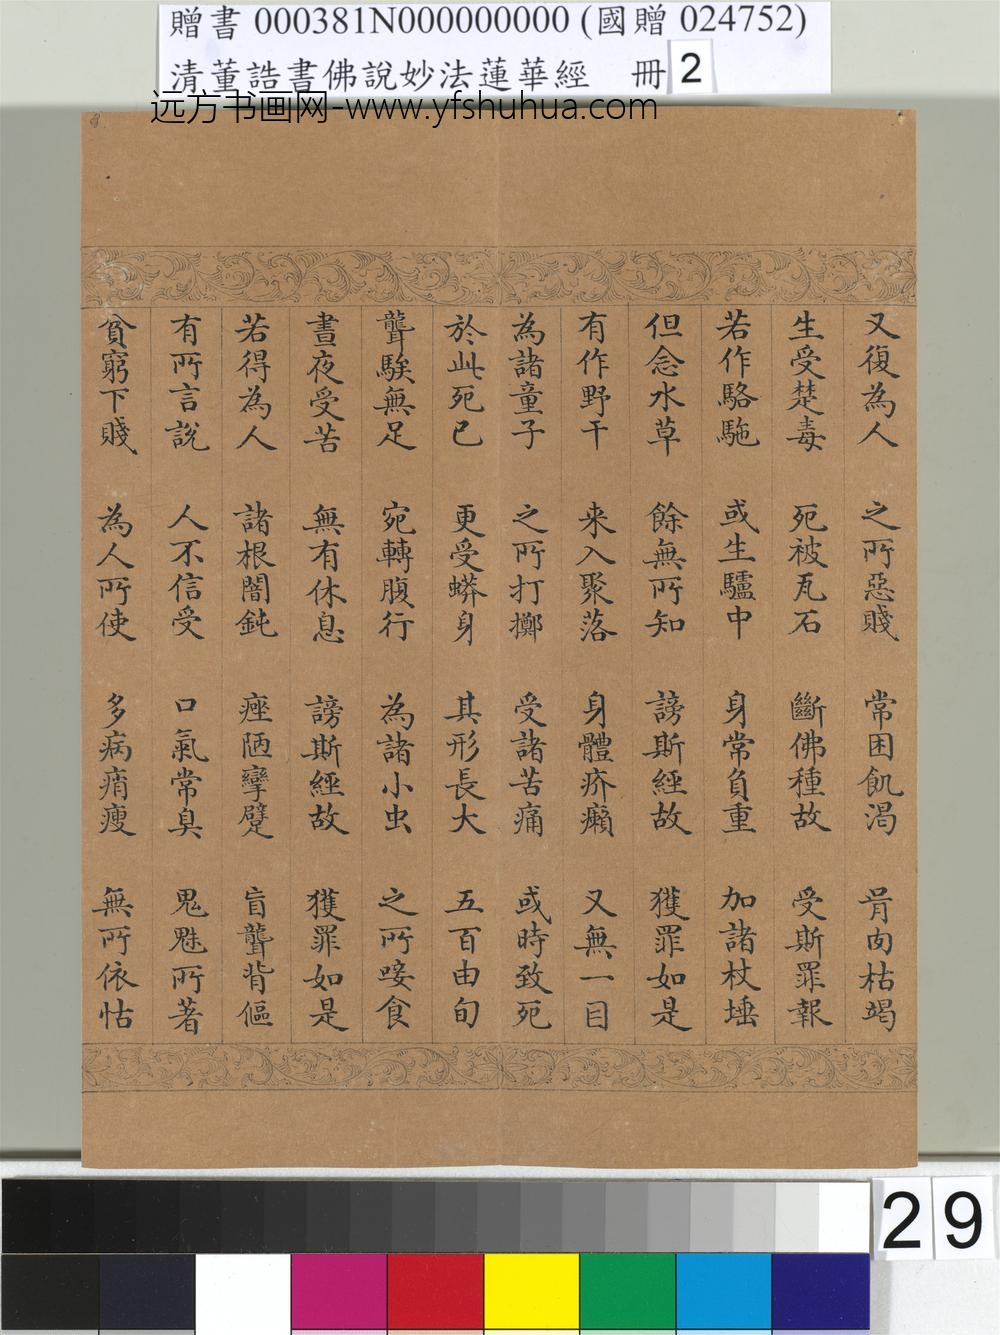 贈書 000381N000000000 (國贈 024752)
清董誥書佛說妙法蓮華經 冊 2
远方书画网-www.yfshuhua.com
又復為人 之所惡賤 常困飢渴 骨肉枯竭
生受楚毒 死被瓦石 斷佛種故 受斯罪報
若作駱駞 或生驢中 身常負重 加諸杖捶
但念水草 餘無所知 謗斯經故 獲罪如是
有作野干 来入聚落 身體疥癩 又無一目
為諸童子 之所打擲 受諸苦痛 或時致死
於此死已 更受蟒身 其形長大 五百由旬
聾騃無足 宛轉腹行 為諸小虫 之所唼食
晝夜受苦 無有休息 謗斯經故 獲罪如是
若得為人 諸根闇鈍 痤陋攣躄 盲聾背傴
有所言說 人不信受 口氣常臭 鬼魅所著
貧窮下賤 為人所使 多病痟瘦 無所依怙
29